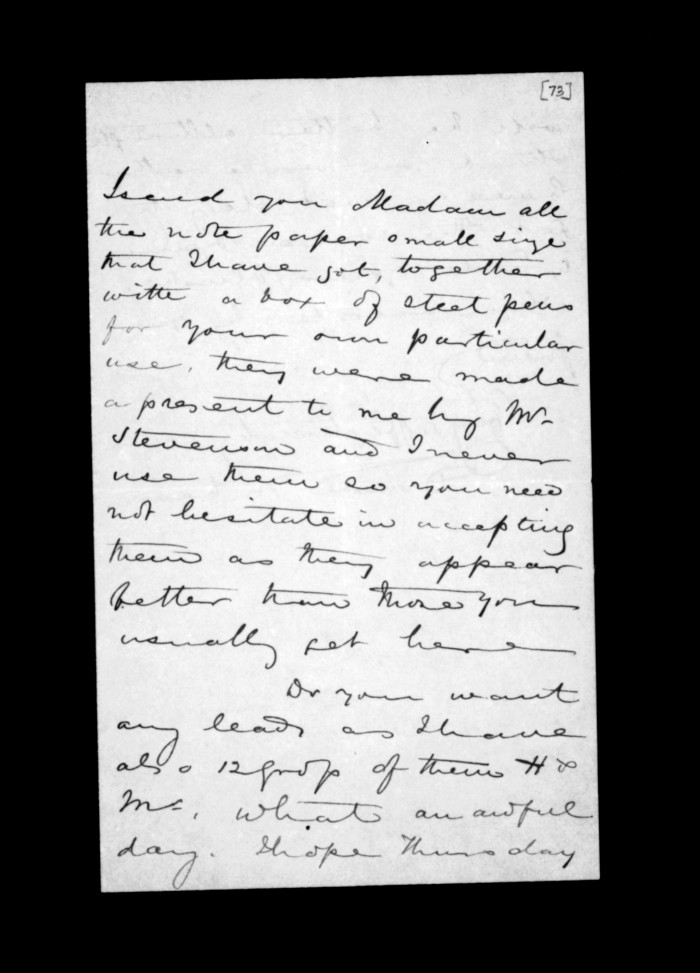 [73]
I send you Madam all
the note paper small size
that I have got, together
with a box of steel pens
for your own particular
use, they were made
a present to me by Mr
Stevenson and I never
use them so you need
not hesitate in accepting
them as they appear
better than those you
usually get here
Do you want
any leads as I have
also 12 of them H &
M. What an awful
day. I hope Thursday